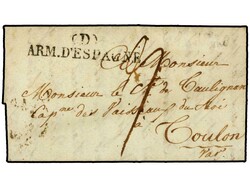 (D)
ARM. D'ESPAGNE
A Monsieur
Monsieur le Cte. de Caulignan
Capne. des Vaisseaux du Roi
à Toulon
Var